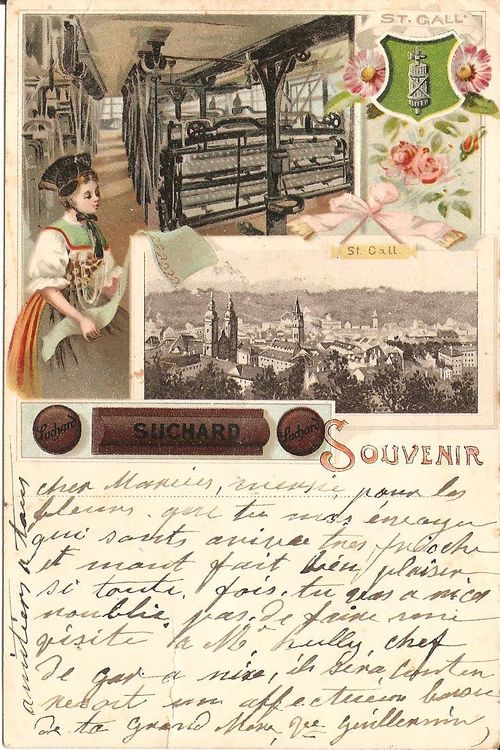 ST. GALL.
St. Gall.
Suchard SUCHARD Suchard
SOUVENIR
cher Marius, mersie, pour les
fleurs que tu mas envoyer
qui sonts arivee tres frèche
et mont fait bien plaisir
si toute fois tu vas a nice
noublie pas de faire une
visite a Mr hully chef
de gar a nice, il sera conten
resoit un affectueux baisé
de ta Grand Mere, Vve Guillermin
amitiers a tous